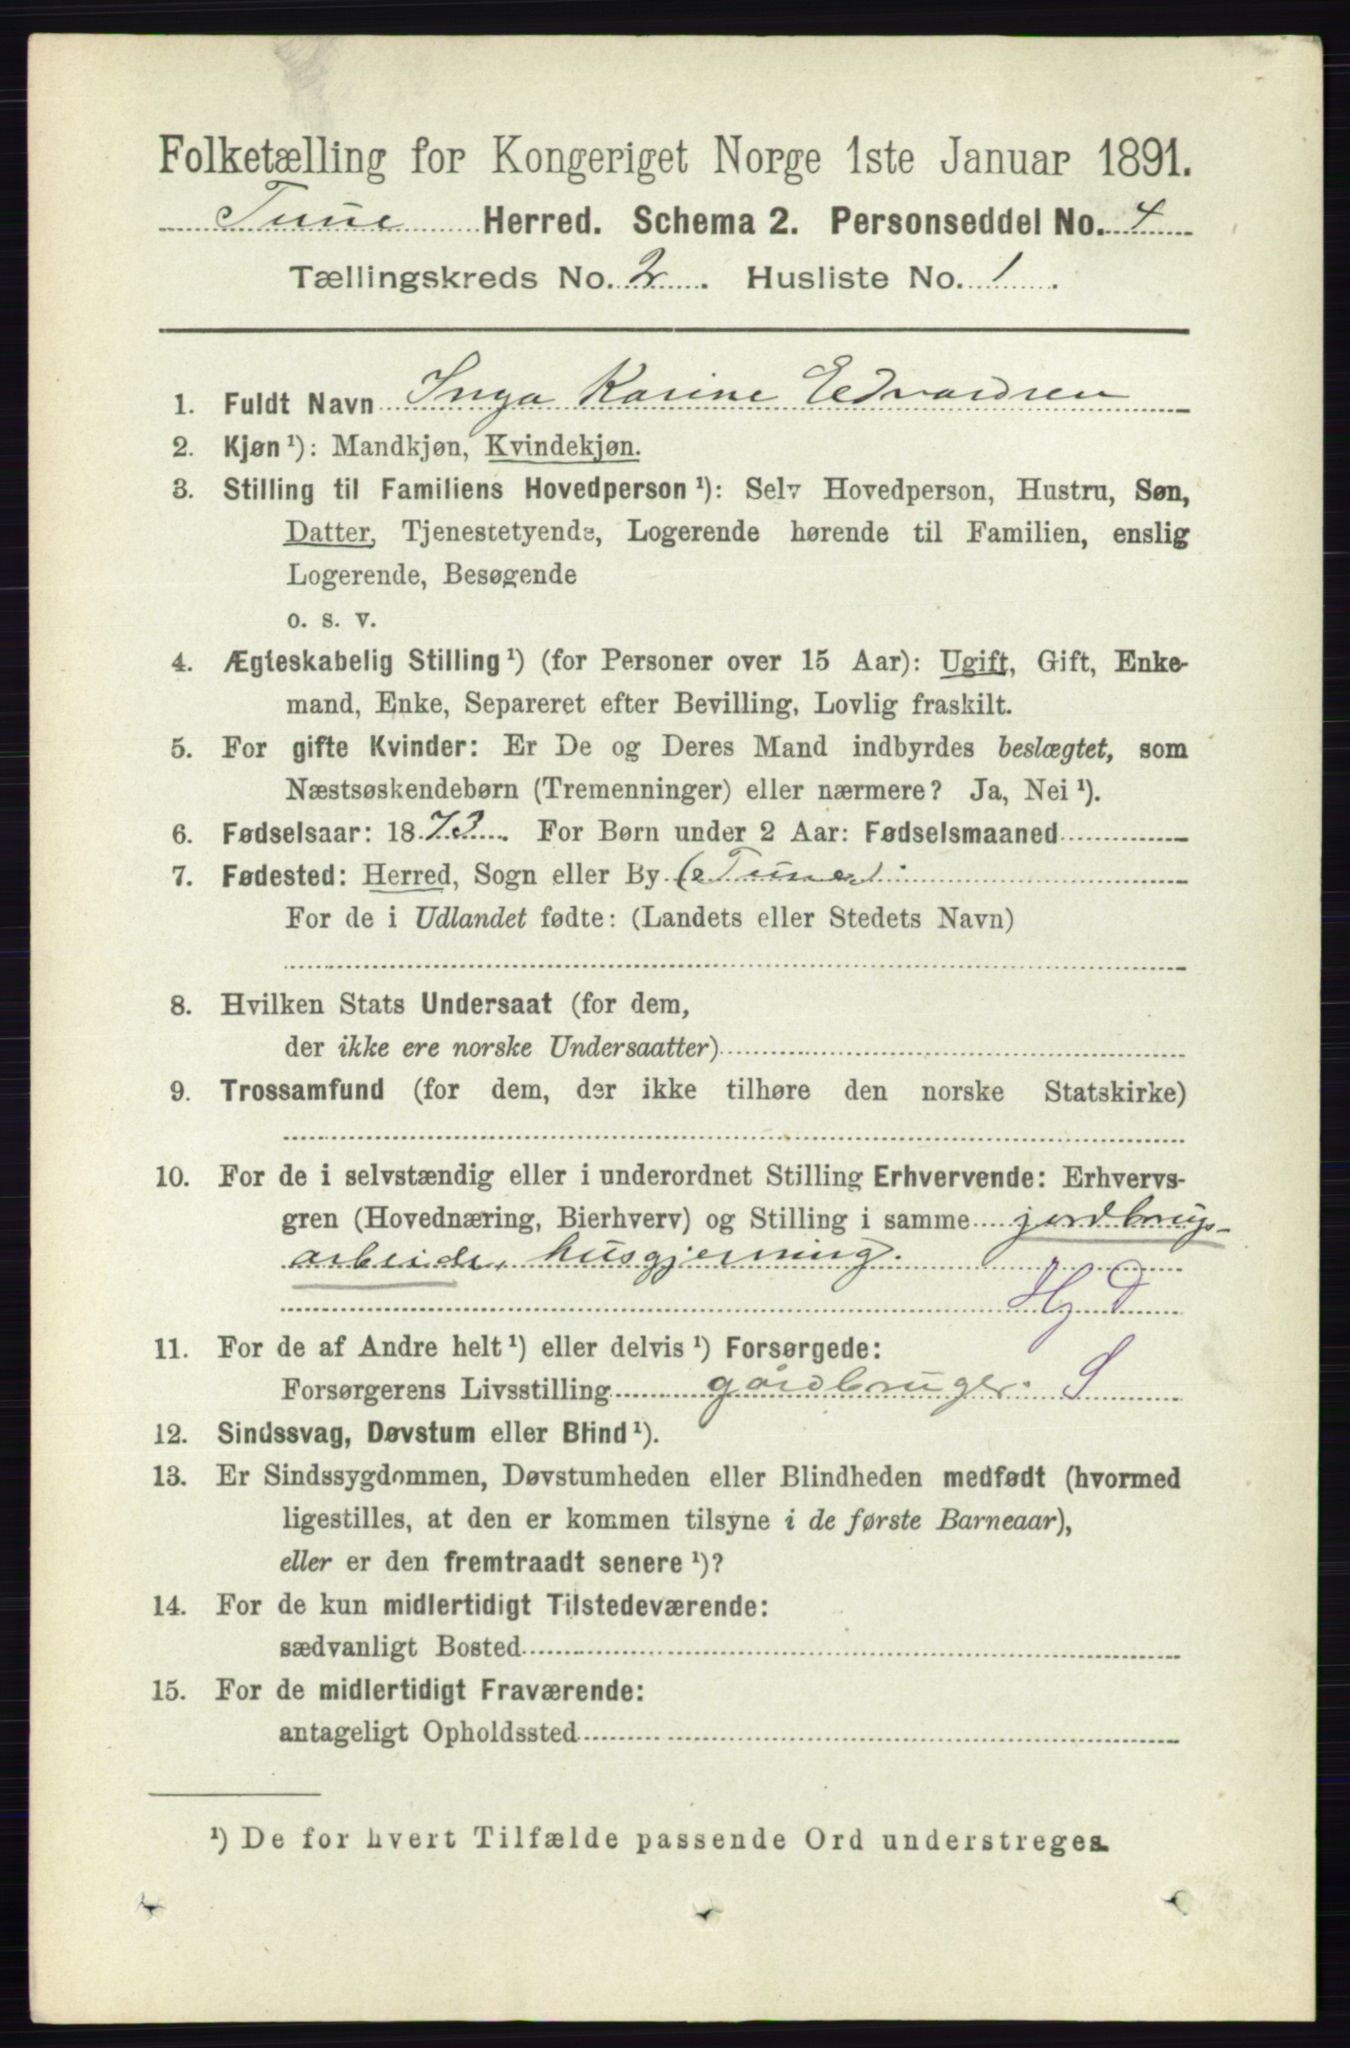 Folketælling for Kongeriget Norge 1ste Januar 1891.
Tune Herred. Schema 2. Personseddel No. 4
Tællingskreds No. 2. Husliste No. 1.
1. Fuldt Navn Inga Karine Edvardsen
2. Kjøn ¹): Mandkjøn, Kvindekjøn.
3. Stilling til Familiens Hovedperson ¹): Selv Hovedperson, Hustru, Søn,
Datter, Tjenestetyende, Logerende hørende til Familien, enslig
Logerende, Besøgende
o. s. v.
4. Ægteskabelig Stilling ¹) (for Personer over 15 Aar): Ugift, Gift, Enke-
mand, Enke, Separeret efter Bevilling, Lovlig fraskilt.
5. For gifte Kvinder: Er De og Deres Mand indbyrdes beslægtet, som
Næstsøskendebørn (Tremenninger) eller nærmere? Ja, Nei ¹).
6. Fødselsaar: 1873. For Børn under 2 Aar: Fødselsmaaned
7. Fødested: Herred, Sogn eller By Tune
For de i Udlandet fødte: (Landets eller Stedets Navn)
8. Hvilken Stats Undersaat (for dem,
der ikke ere norske Undersaatter)
9. Trossamfund (for dem, der ikke tilhøre den norske Statskirke)
10. For de i selvstændig eller i underordnet Stilling Erhvervende: Erhvervs-
gren (Hovednæring, Bierhverv) og Stilling i samme jordbrugs-
arbeide, husgjerning.
Hj D
11. For de af Andre helt ¹) eller delvis ¹) Forsørgede:
Forsørgerens Livsstilling gårdbruger. S
12. Sindssvag, Døvstum eller Blind ¹).
13. Er Sindssygdommen, Døvstumheden eller Blindheden medfødt (hvormed
ligestilles, at den er kommen tilsyne i de første Barneaar),
eller er den fremtraadt senere ¹)?
14. For de kun midlertidigt Tilstedeværende:
sædvanligt Bosted
15. For de midlertidigt Fraværende:
antageligt Opholdssted
¹) De for hvert Tilfælde passende Ord understreges.